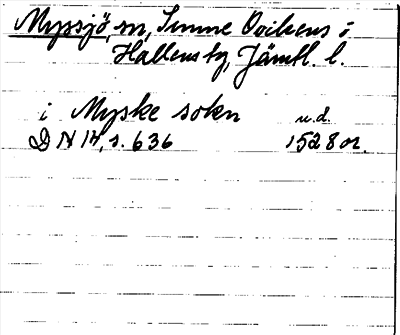 Myssjö, sn, Sunne Ovikens o.
Hallens tg, Jämtl. l.
i Myske sokn u.d.
DN 14, s. 636 1528 or.